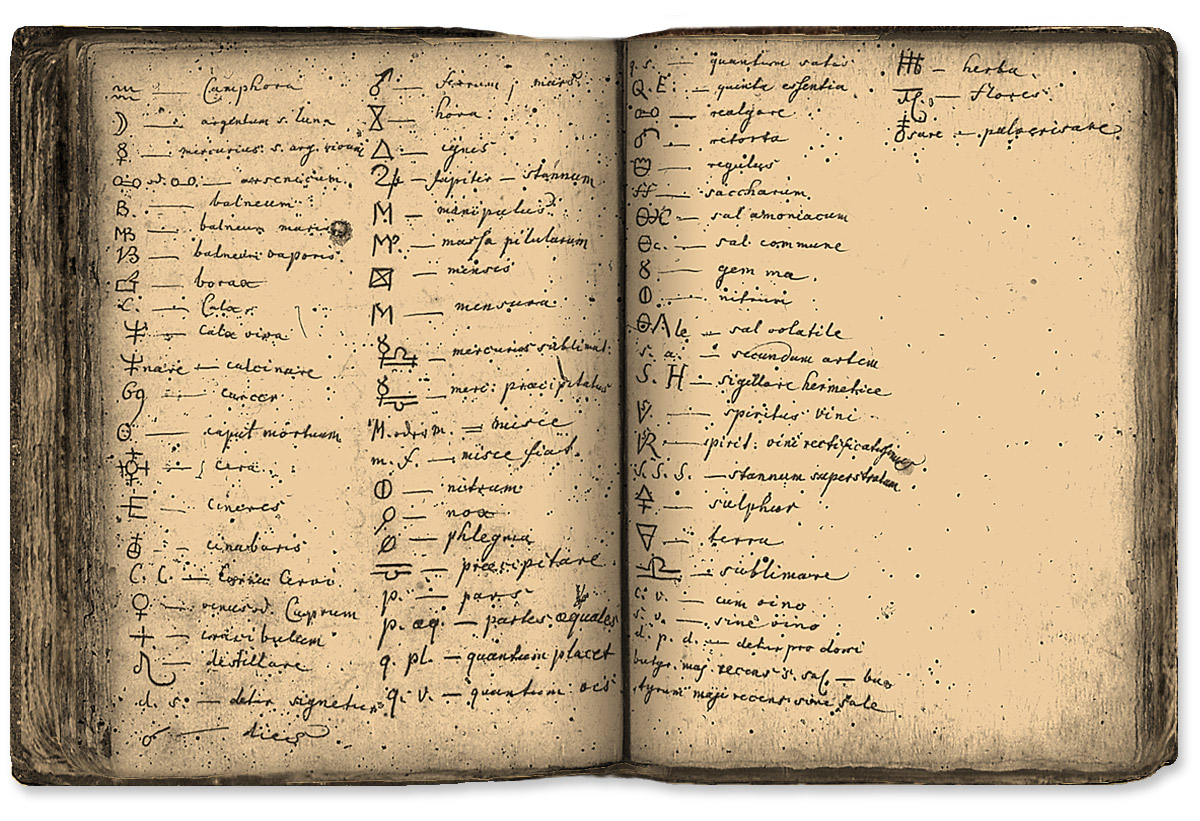 — Camphora
☽ — argentum s. luna
☿ — mercurius s. arg. vivum
o-o vel o.o. — arsenicum.
B. — balneum
MB — balneum mariæ
VB — balneum vaporis
— borax
C. — Calx.
— calx viva
nare — calcinare
— cancer
— caput mortuum
— cera.
E — cineres
— cinabaris
C. C. — Cornu Cervi
♀ — venus vel. Cuprum
+ — crucibulum
— destillare
d. s. — detur signetur
— dies
♂ — ferrum, mars.
— hora
△ — ignis
♃ — Jupiter — stannum
M — manipulus
MP. — massa pilularum
— mensis
M — mensura
☿ — mercurius sublimat:
☿ — merc: præcipitatus
M. — misce
m. f. — misce fiat.
— nitrum
— nox
— phlegma
— præcipitare.
p. — pars
p. æq. — partes æquales
q. pl. — quantum placet
q. v. — quantum vis
q. s. — quantum satis
Q. E. — quinta essentia
o-o — realgare
— retorta
— regulus
— saccharum.
— sal amoniacum
c. — sal commune
8 — gemma
— nitrum
le — sal volatile
s. a. — secundum artem
S. H — sigillare hermetice
V. — spiritus vini
VR — spirit. vini rectificatissimus
S. S. S. — stannum superstratum
🜍 — sulphur
— terra
— sublimare
c. v. — cum vino
s. v. — sine vino
d. p. d. — detur pro domi
butyr. maj. recens s. sal — bu
tyrum maji recens sine sale
— herba.
— flores.
sare — pulverisare